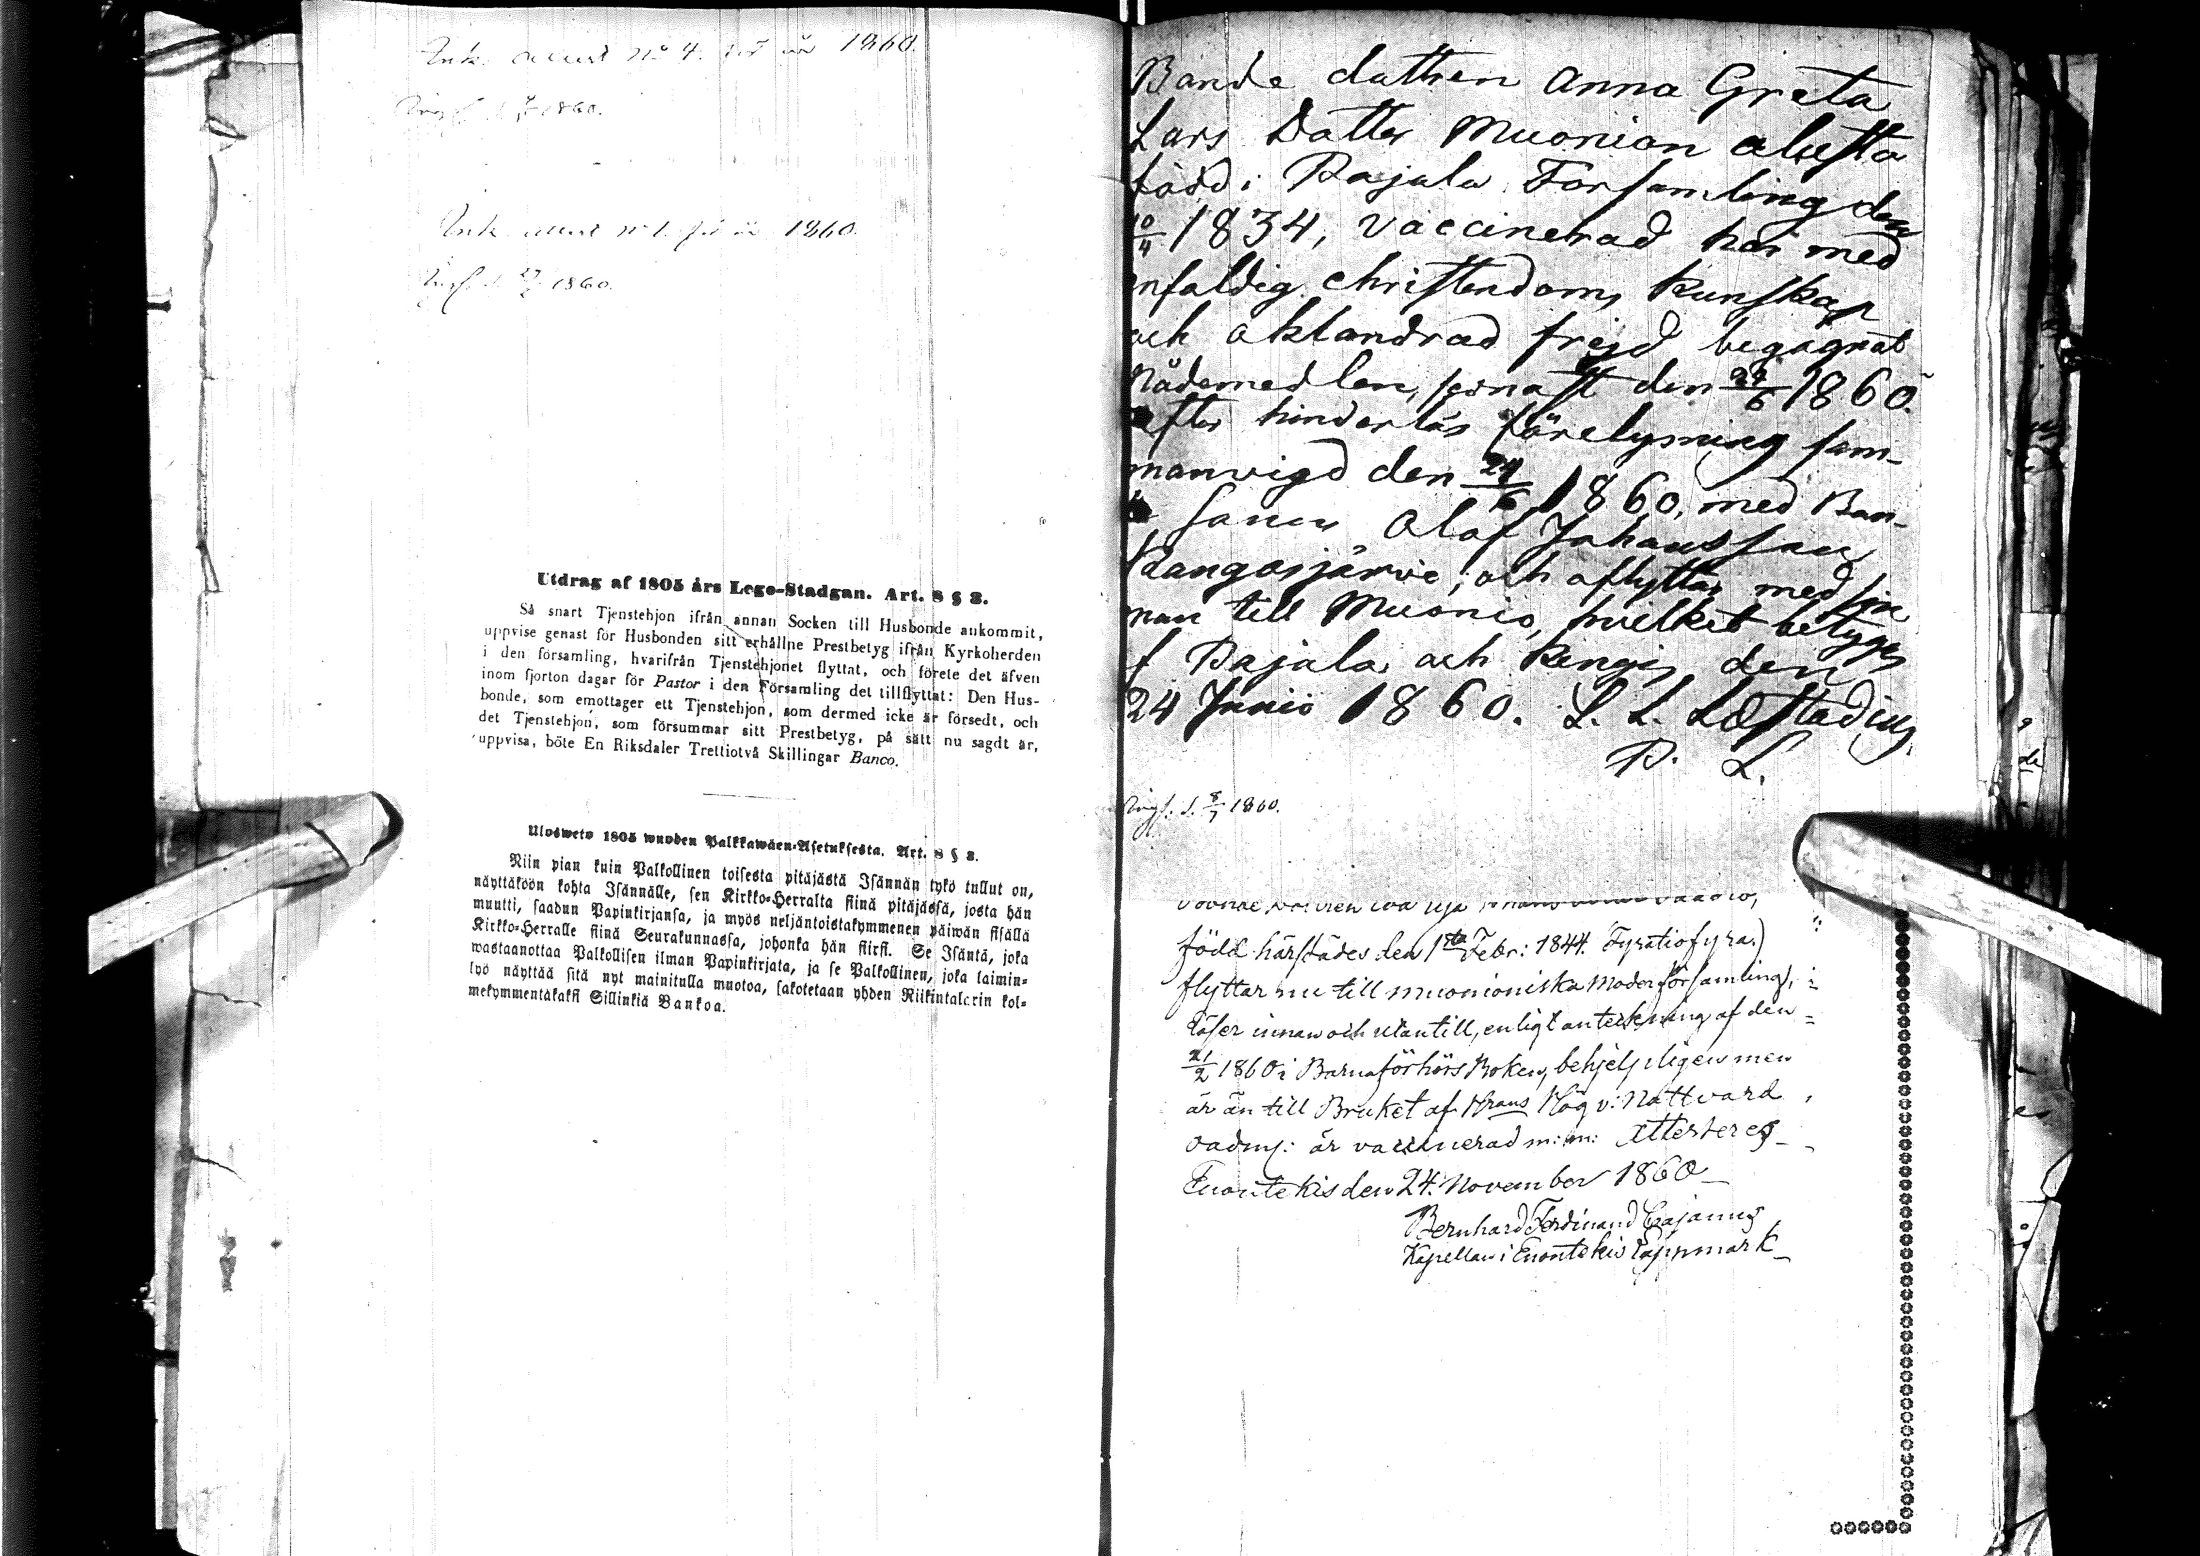 Ink. attest No 4. för år 1860.
1860.
Ink. attest No 1. för år 1860.
1860.
Utdrag af 1805 års Lego-Stadgan. Art. 8 § 3.
Så snart Tjenstehjon ifrån annan Socken till Husbonde ankommit,
uppvise genast för Husbonden sitt erhållne Prestbetyg ifrån Kyrkoherden
i den församling, hvarifrån Tjenstehjonet flyttat, och förete det äfven
inom fjorton dagar för Pastor i den Församling det tillflyttat: Den Hus-
bonde, som emottager ett Tjenstehjon, som dermed icke är försedt, och
det Tjenstehjon, som försummar sitt Prestbetyg, på sätt nu sagdt är,
uppvisa, böte En Riksdaler Trettiotvå Skillingar Banco.
Ulosweto 1805 wuoden Palkkawäen-Asetuksesta. Art. 8 § 3.
Niin pian kuin Palkollinen toisesta pitäjästä Isännän tykö tullut on,
näyttäköön kohta Isännälle, sen Kirkko-Herralta siinä pitäjässä, josta hän
muutti, saadun Papinkirjansa, ja myös neljäntoistakymmenen päiwän sisällä
Kirkko-Herralle siinä Seurakunnassa, johonka hän siirsi. Se Isäntä, joka
wastaanottaa Palkollisen ilman Papinkirjata, ja se Palkollinen, joka laimin-
lyö näyttää sitä nyt mainitulla muotoa, sakotetaan yhden Riikintalerin kol-
mekymmentäkaksi Sillinkiä Bankoa.
Bonde dottren Anna Greta
Lars Dotter Muonion alusta
född i Pajala Församling den
10/4 1834, vaccinerad har med
enfaldig christendoms kunskap
och oklandrad frejd begagnat
Nådemedlen, senast den 24/6 1860.
efter hinderlös förelysning sam-
manvigd den 24/6 1860, med Bon-
de sonen Olof Johansson
Kangosjärvi, och aflyttar med sin
man till Muonio, hvilket betyges
f Pajala och Kengis den
24 Junii 1860. L. L. Læstadius
P. L.
Ingf. d. 8/7 1860.
född härstädes den 1sta Febr: 1844. Fyratiofyra.)
flyttar nu till Muonioniska Moderförsamling,
läser innan och utantill, enligt anteckning af den
21/2 1860 i Barnaförhörs Boken, behjelpligen men
är än till Bruket af Hrans Hög v: Nattvard
oadm: är vaccinerad m: m: Attesteras
Enontekis den 24. November 1860
Bernhard Ferdinand Cajanus
Kapellan i Enontekis Lappmark